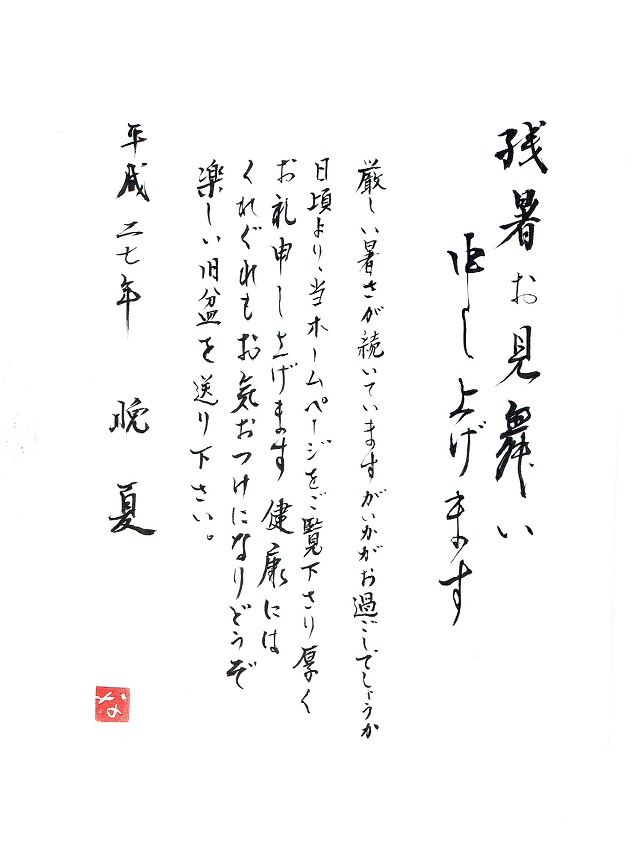 残暑お見舞い
申し上げます
厳しい暑さが続いていますがいかがお過ごしでしょうか
日頃より、当ホームページをご覧下さり厚く
お礼申し上げます健康には
くれぐれもお気おつけになりどうぞ
楽しい旧盆を送り下さい。
平成二七年 晩夏
な